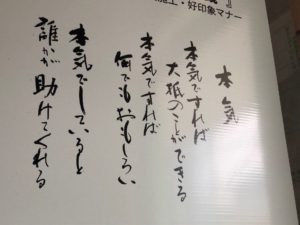 』
施工・好印象マナー
本気
本気ですれば
大抵のことができる
本気ですれば
何でもおもしろい
本気でしていると
誰かが助けてくれる